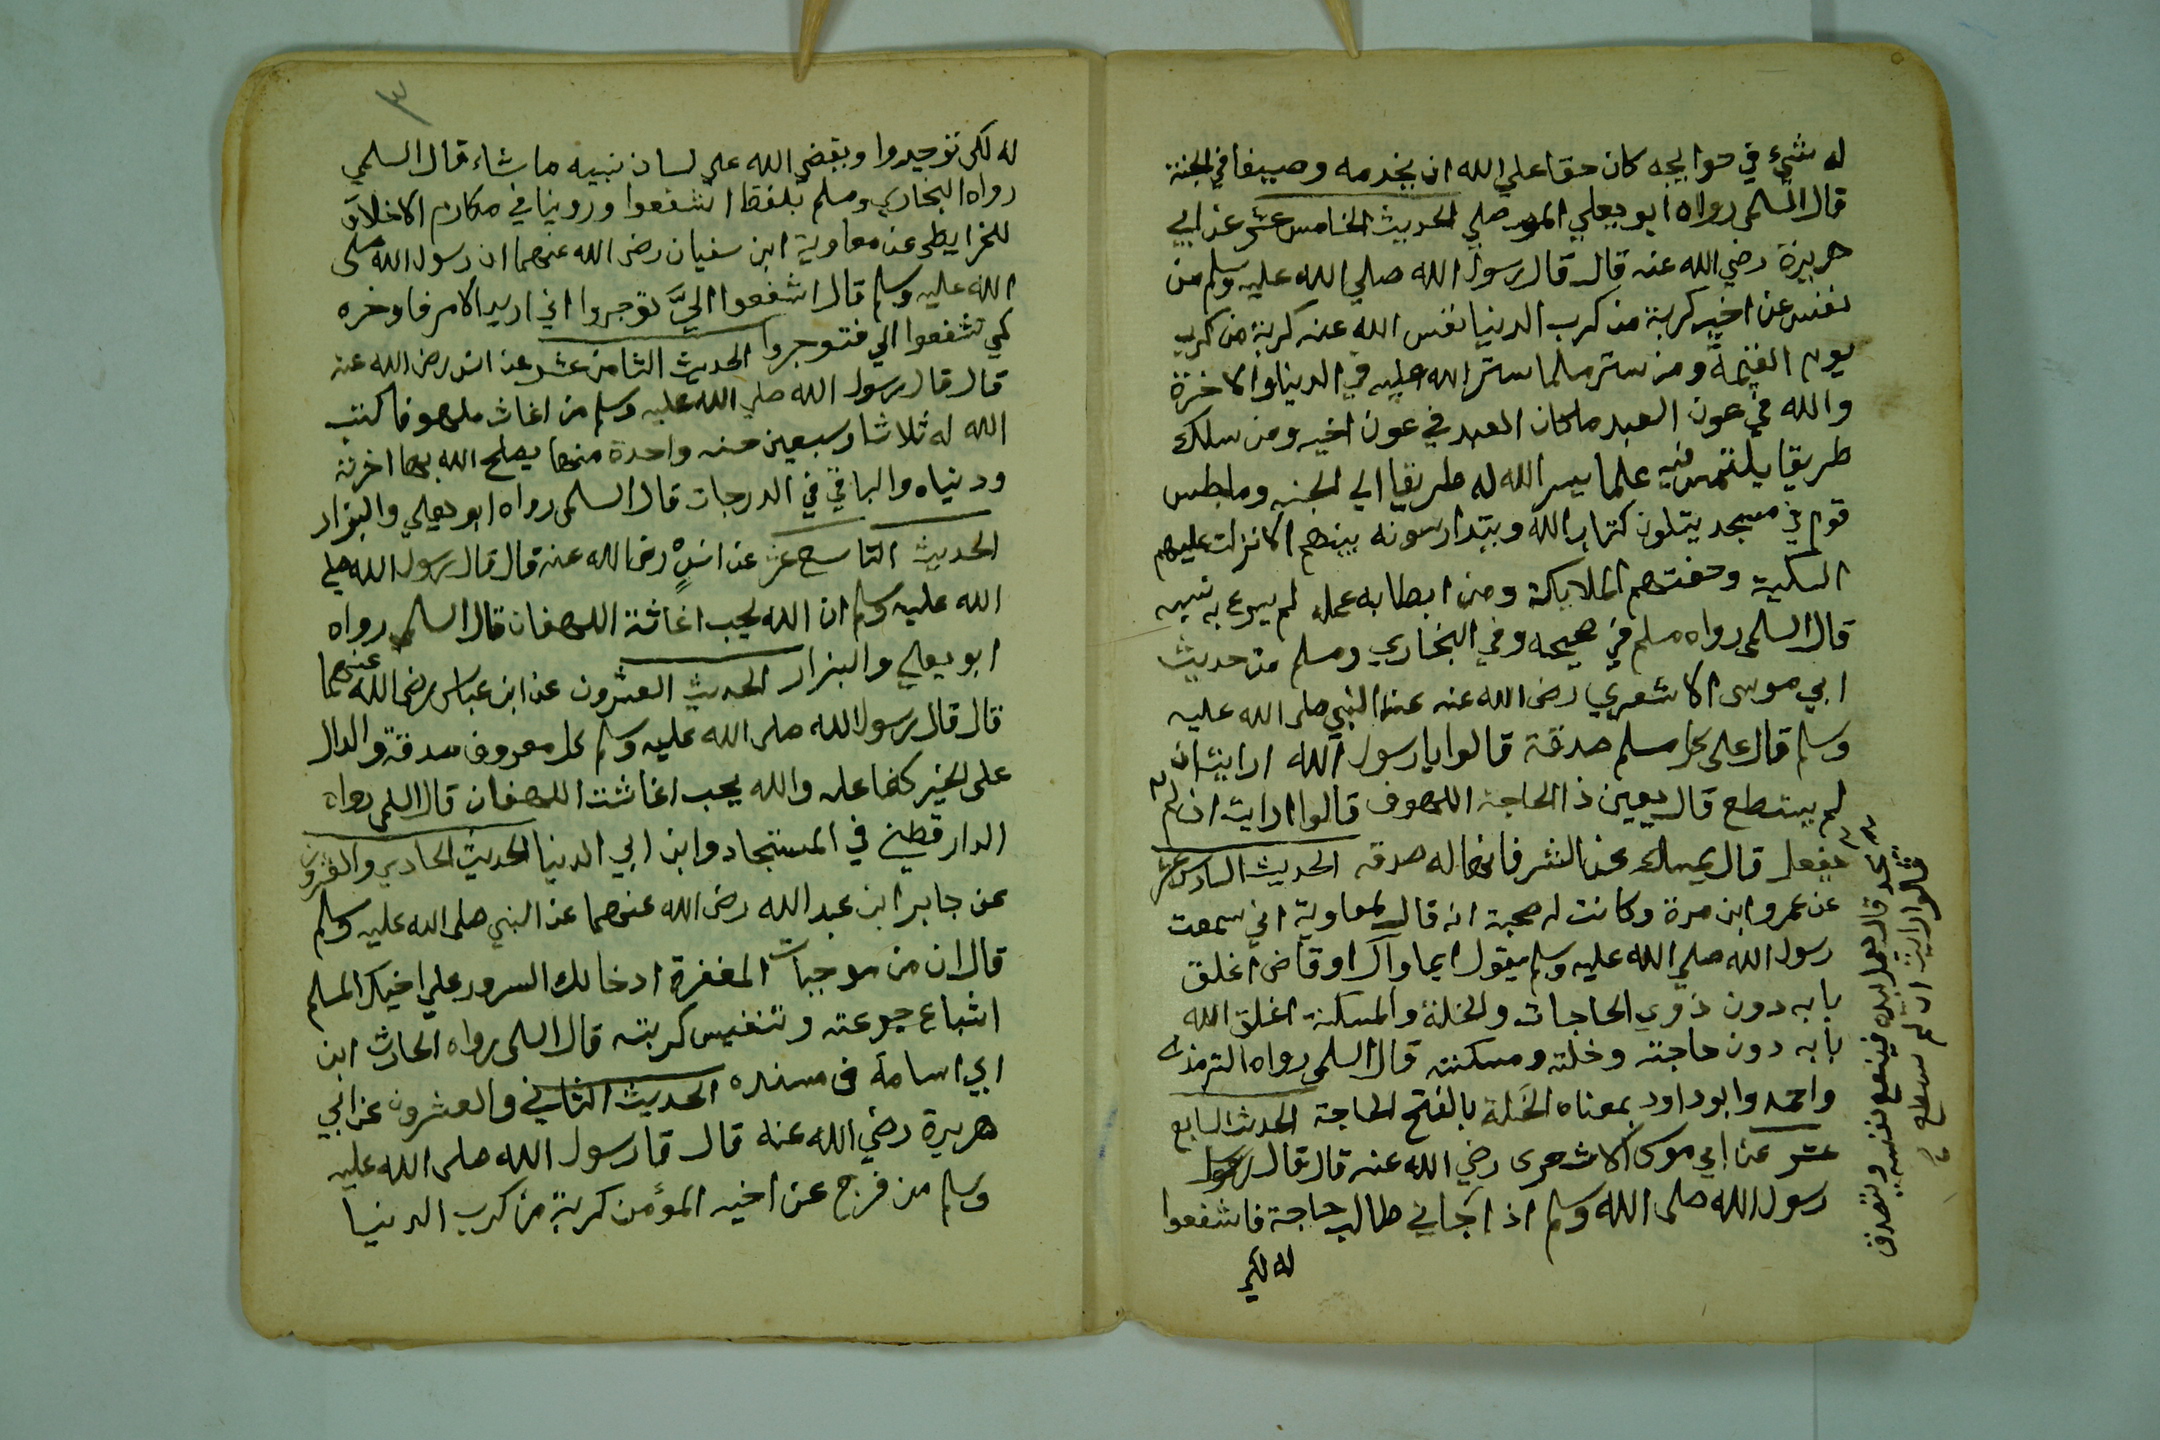 له شيء في حوايجه كان حقا علي الله ان يخدمه وصيفا في الجنة
قال السلمي رواه ابو يعلي الموصلي الحديث الخامس عشر عن ابي
هريرة رضي الله عنه قال قال رسول الله صلي الله عليه وسلم من
نفس عن اخيه كربة من كرب الدنيا نفس الله عنه كربة من كرب
يوم القيمة ومن ستر مسلما ستر الله عليه في الدنيا والاخرة
والله في عون العبد ما كان العبد في عون اخيه ومن سلك
طريقا يلتمس فيه علما يسر الله له طريقا الي الجنه وما جلس
قوم في مسجد يتلون كتاب الله ويتدارسونه بينهم الا نزلت عليهم
السكينة وحفتهم الملايكة ومن ابطا به عمله لم يسرع به نسبه
قال السلمي رواه مسلم في صحيحه وفي البخاري ومسلم من حديث
ابي موسى الاشعري رضي الله عنه عن النبي صلى الله عليه
وسلم قال على كل مسلم صدقة قالوا يا رسول الله ارايت ان
لم يستطع قال يعين ذا الحاجة اللهوف قالوا ارايت ان لم
يفعل قال يمسك عن الشر فانها له صدقه الحديث السادس عشر
عن عمرو ابن مرة وكانت له صحبة انه قال لمعاوية اني سمعت
رسول الله صلي الله عليه وسلم يقول ايما وال او قاض اغلق
بابه دون ذوي الحاجات والخلة والمسكنة اغلق الله
بابه دون حاجته وخلته ومسكنته قال السلمي رواه الترمذي
واحمد وابو داود بمعناه الخلة بالفتح الحاجة الحديث السابع
عشر عن ابي موسى الاشعرى رضي الله عنه قال قال رسول
رسول الله صلى الله وسلم اذا جاني طالب حاجة فاشفعوا
له لكي
يجد قال يعمل بيده فينفع نفسه ويتصدق
قالوا ارايت ان لم يستطع
٣
له لكي توجروا ويقضي الله علي لسان نبيه ما شاء قال السلمي
رواه البخاري ومسلم بلفظ اشفعوا وروينا في مكارم الاخلاق
للخرايطي عن معاوية ابن سفيان رضى الله عنهما ان رسول الله صلى
الله عليه وسلم قال اشفعوا اليَّ توجروا اني اريد الامر فاوخره
كي تشفعوا الي فتوجروا الحديث الثامن عشر عن انس رضي الله عنه
قال قال رسول الله صلي الله عليه وسلم من اغاث ملهوفا كتب
الله له ثلاثا وسبعين حسنه واحدة منها يصلح الله بها اخرته
ودنياه والباقي في الدرجات قال السلمى رواه ابو يعلي والبزار
الحديث التاسع عشر عن انسٍ رضي الله عنه قال قال رسول الله صلي
الله عليه وسلم ان الله يحب اغاثة اللهفان قال السلمي رواه
ابو يعلي والبزار الحديث العشرون عن ابن عباس رضي الله عنهما
قال قال رسول الله صلى الله عليه وسلم كل معروف صدقة والدال
على الخير كفاعله والله يحب اغاثت اللهفان قال السلمى رواه
الدارقطني في المستجاد وابن ابي الدنيا الحديث الحادي والعشرون
عن جابر ابن عبد الله رضى الله عنهما عن النبي صلى الله عليه وسلم
قال ان من موجبات المغفرة ادخالك السرور علي اخيك المسلم
اشباع جوعته وتنفيس كربته قال السلمى رواه الحارث ابن
ابي اسامة فى مسنده الحديث الثاني والعشرون عن ابي
هريرة رضي الله عنه قال قا رسول الله صلى الله عليه
وسلم من فرج عن اخيه المؤمن كربة من كرب الدنيا